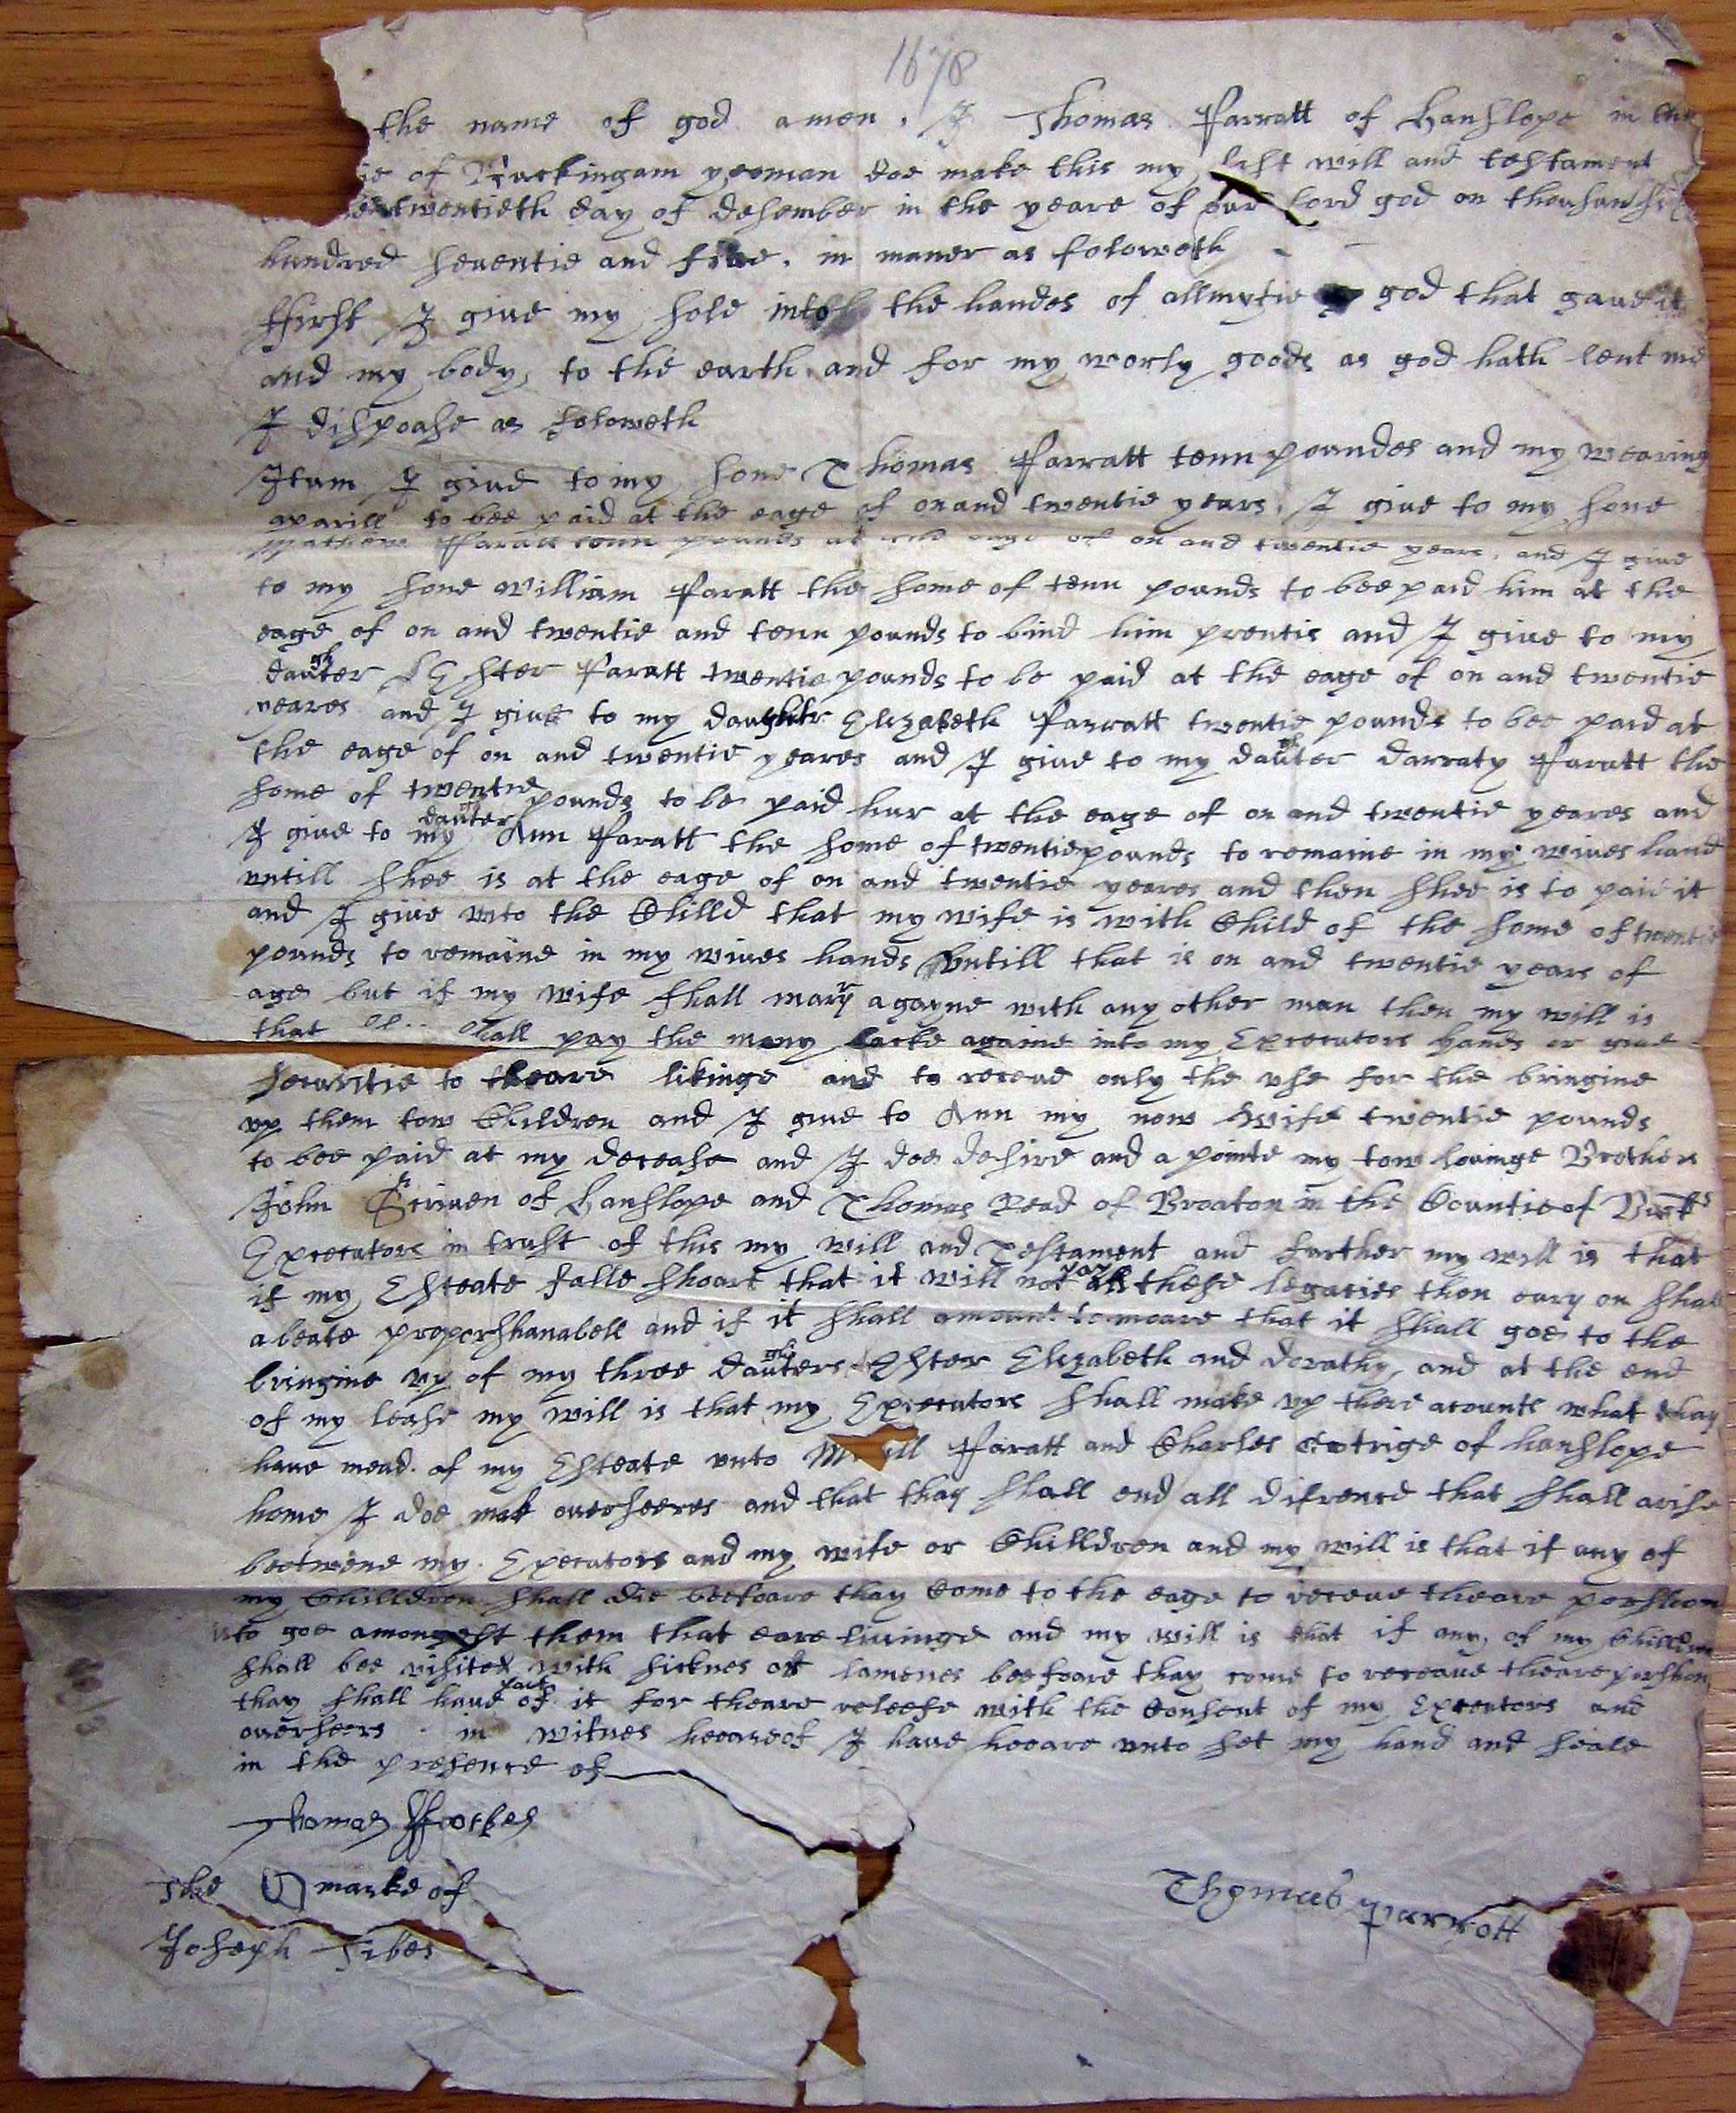 1678
the name of god amen, I Thomas Parratt of Hanslope in the
ie of Buckingam yeoman doe make this my last will and testament
twentieth day of desember in the yeare of our lord god on thousan six
hundred seuentie and fiue, in maner as foloweth
ffirst I giue my sole into the handes of allmytie god that gaue it
and my body, to the earth and for my worly goods as god hath lent me
I dispoase as foloweth
Itum I giue to my sone Thomas Parratt tenn poundes and my wearing
aparill to bee paid at the eage of on and twentie years, I giue to my sone
Paratt tenn pounds at the eage of on and twentie years, and I giue
to my sone William Paratt the some of tenn pounds to bee paid him at the
eage of on and twentie and tenn pounds to bind him prentis and I giue to my
daughter Ester Paratt twentie pounds to be paid at the eage of on and twentie
yeares and I giue to my daughter Elizabeth Parratt twentie pounds to bee paid at
the eage of on and twentie yeares and I giue to my daughter darraty Paratt the
some of twentie pounds to be paid hur at the eage of on and twentie yeares and
I giue to my daughter Ann Paratt the some of twentie pounds to remaine in my wiues hand
untill shee is at the eage of on and twentie yeares and then shee is to paid it
and I giue unto the Chilld that my wife is with Child of the some of twentie
pounds to remaine in my wiues hands untill that is on and twentie years of
age but if my wife shall mary agayne with any other man then my will is
that shall pay the mony backe againe into my Executors hands or giue
securitie to theare likinge and to receue only the use for the bringine
up them tow Children and I giue to Ann my now wife twentie pounds
to bee paid at my decease and I doe desire and a pointe my tow louinge Brothers
John Scriuen of Hanslope and Thomas Read of Broaton in the Countie of Bucks
Executors in trust of this my will and Testament and further my will is that
if my Esteate falle shoart that it will not pay all these legacies then eary on shall
abeate propershanabell and if it shall amount to moare that it shall goe to the
bringine up of my three daughters Ester Elizabeth and dorathy, and at the end
of my lease my will is that my Executors shall make up there acounts what thay
haue mead of my Esteate unto Paratt and Charles of hanslope
home I doe mak ouerseeres and that thay shall end all difrence that shall arise
beetwene my Executors and my wife or Chilldren and my will is that if any of
my Chilldren shall die beefoare thay Come to the eage to receue theare porshon
is to goe amongest them that eare liuinge and my will is that if any of my Chilldren
shall bee visited with sicknes or lamenes beefoare thay come to receaue theare porshon
thay shall haue part of it for theare releefe with the Consent of my Executors and
ouerseers in witnes heeareof I haue heeare unto set my hand and seale
in the presence of
Thomas
The marke of
Joseph
Thomas Parrott